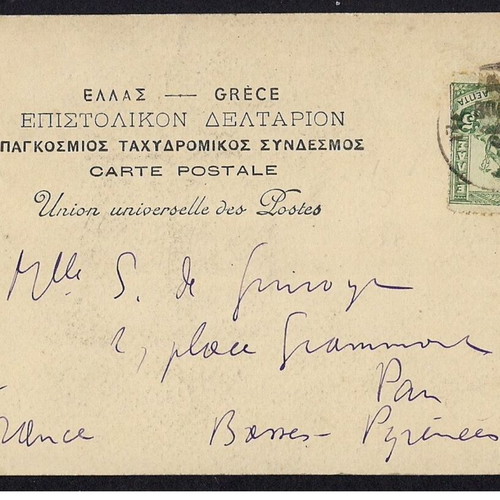 ΕΛΛΑΣ — GRÈCE
ΕΠΙΣΤΟΛΙΚΟΝ ΔΕΛΤΑΡΙΟΝ
ΠΑΓΚΟΣΜΙΟΣ ΤΑΧΥΔΡΟΜΙΚΟΣ ΣΥΝΔΕΣΜΟΣ
CARTE POSTALE
Union universelle des Postes
ΛΕΠΤΑ
Mlle S. de
2, place Grammont
Pau
France Basses-Pyrénées